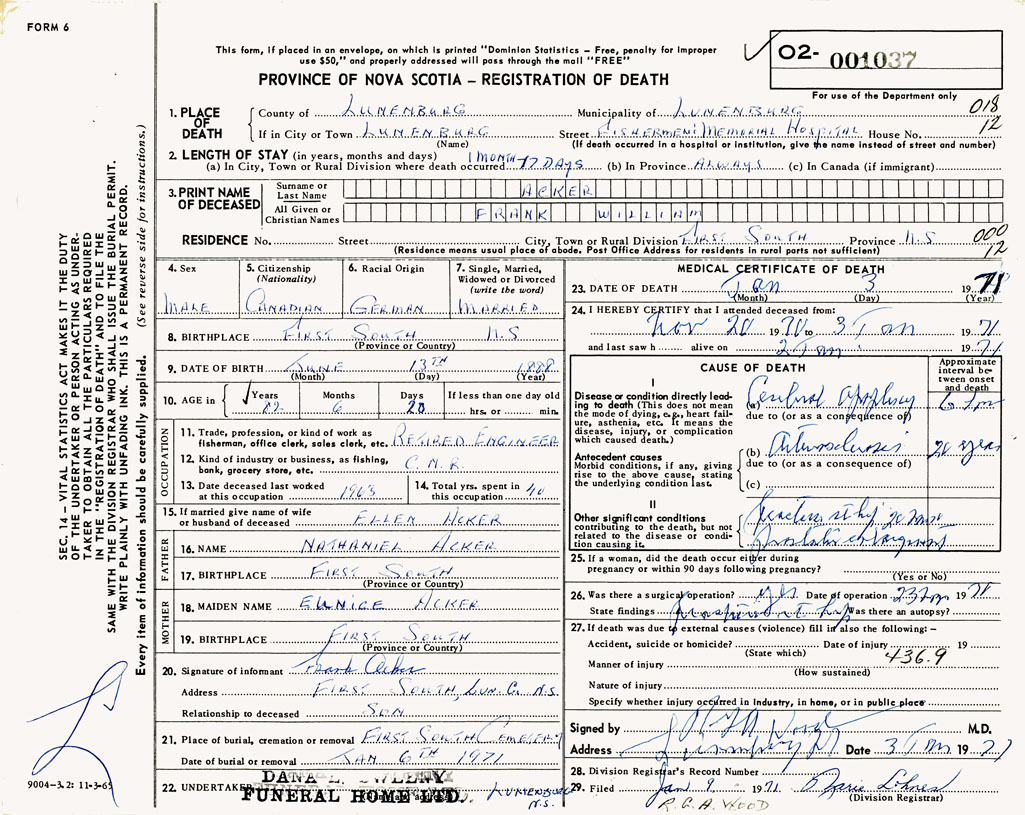 FORM 6
This form, if placed in an envelope, on which is printed "Dominion Statistics – Free, penalty for improper
use $50," and properly addressed will pass through the mail "FREE"
PROVINCE OF NOVA SCOTIA – REGISTRATION OF DEATH
02- 001037
For use of the Department only
018
12
1. PLACE OF DEATH
County of LUNENBURG Municipality of LUNENBURG
If in City or Town LUNENBURG Street FISHERMENS MEMORIAL HOSPITAL House No.
(Name) (If death occurred in a hospital or institution, give the name instead of street and number)
2. LENGTH OF STAY (in years, months and days) 1 MONTH 17 DAYS
(a) In City, Town or Rural Division where death occurred (b) In Province ALWAYS (c) In Canada (if immigrant)
3. PRINT NAME OF DECEASED
Surname or Last Name ACKER
All Given or Christian Names FRANK WILLIAM
RESIDENCE No. Street City, Town or Rural Division FIRST SOUTH Province N.S
(Residence means usual place of abode. Post Office Address for residents in rural parts not sufficient)
000
12
4. Sex
MALE
5. Citizenship (Nationality)
CANADIAN
6. Racial Origin
GERMAN
7. Single, Married, Widowed or Divorced (write the word)
MARRIED
8. BIRTHPLACE FIRST SOUTH N.S
(Province or Country)
9. DATE OF BIRTH JUNE 13TH 1888
(Month) (Day) (Year)
10. AGE in Years 82 Months 6 Days 20 If less than one day old hrs. or min.
OCCUPATION
11. Trade, profession, or kind of work as fisherman, office clerk, sales clerk, etc. RETIRED ENGINEER
12. Kind of industry or business, as fishing, bank, grocery store, etc. C.N.R.
13. Date deceased last worked at this occupation 1963
14. Total yrs. spent in this occupation 40
15. If married give name of wife or husband of deceased ELLEN ACKER
FATHER
16. NAME NATHANIEL ACKER
17. BIRTHPLACE FIRST SOUTH
(Province or Country)
MOTHER
18. MAIDEN NAME EUNICE ACKER
19. BIRTHPLACE FIRST SOUTH
(Province or Country)
20. Signature of informant Frank Acker
Address FIRST SOUTH, LUN. Co. N.S.
Relationship to deceased SON
21. Place of burial, cremation or removal FIRST SOUTH CEMETERY
Date of burial or removal JAN 6TH 1971
22. UNDERTAKER DANA L. SWEENY
FUNERAL HOME LTD. LUNENBURG
N.S.
MEDICAL CERTIFICATE OF DEATH
23. DATE OF DEATH Jan 3 1971
(Month) (Day) (Year)
24. I HEREBY CERTIFY that I attended deceased from:
Nov 20 1970 to 3 Jan 1971
and last saw h alive on 2 Jan 1971
CAUSE OF DEATH
Approximate interval between onset and death
I
Disease or condition directly leading to death (This does not mean the mode of dying, e.g., heart failure, asthenia, etc. It means the disease, injury, or complication which caused death.)
(a) Cerebral Apoplexy
due to (or as a consequence of)
Antecedent causes
Morbid conditions, if any, giving rise to the above cause, stating the underlying condition last.
(b) Arteriosclerosis 20 years
due to (or as a consequence of)
(c)
II
Other significant conditions contributing to the death, but not related to the disease or condition causing it.
fracture rt hip 20 Nov
25. If a woman, did the death occur either during pregnancy or within 90 days following pregnancy?
(Yes or No)
26. Was there a surgical operation? yes Date of operation 23 Nov 1970
State findings rt hip Was there an autopsy?
27. If death was due to external causes (violence) fill in also the following: –
Accident, suicide or homicide? Date of injury 19
(State which) 436.9
Manner of injury
(How sustained)
Nature of injury
Specify whether injury occurred in Industry, in home, or in public place
Signed by M.D.
Address Lunenburg NS Date 3 Jan 1971
28. Division Registrar's Record Number
29. Filed Jan 9 1971 Lohnes
(Division Registrar)
R.G.A. WOOD
SEC. 14 – VITAL STATISTICS ACT MAKES IT THE DUTY
OF THE UNDERTAKER OR PERSON ACTING AS UNDER-
TAKER TO OBTAIN ALL THE PARTICULARS REQUIRED
IN THE "REGISTRATION OF DEATH" AND TO FILE THE
SAME WITH THE DIVISION REGISTRAR WHO SHALL ISSUE THE BURIAL PERMIT.
WRITE PLAINLY WITH UNFADING INK. THIS IS A PERMANENT RECORD.
Every item of information should be carefully supplied. (See reverse side for instructions.)
9004–3.2: 11-3-65